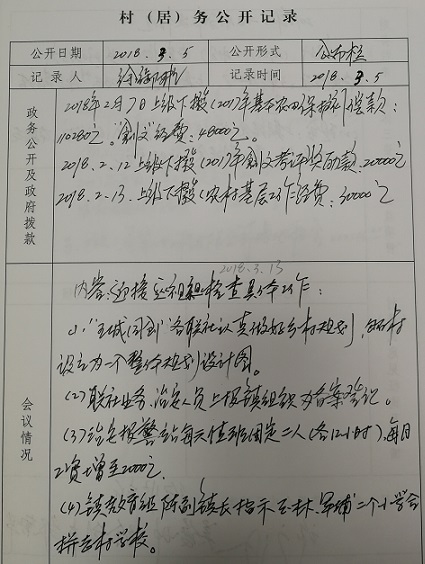 村（居）务公开记录
公开日期 2018.3.5 公开形式 公布栏
记录人 记录时间 2018.3.5
政务公开及政府拨款
2018年2月7日上级下拨(2017年基本农田保护补偿款：
11020元。"创文"经费：48000元。
2018.2.12上级下拨(2017年创文考评奖励款:20000元
2018.2.13.上级下拨(农村基层工作经费:30000元
2018.3.13
会议情况
内容:迎接巡视组检查具体工作：
各联社认真做好乡村规划,
设立为一个整体规划设计图。
(2)联社业务、治安人员上报镇组织办备案登记。
(3)治安报警站每天值班固定二人(各12小时),每月
工资增至2000元.
(4)镇教育组陈副镇长指示玉林、军埔二个小学合
并玉村学校。